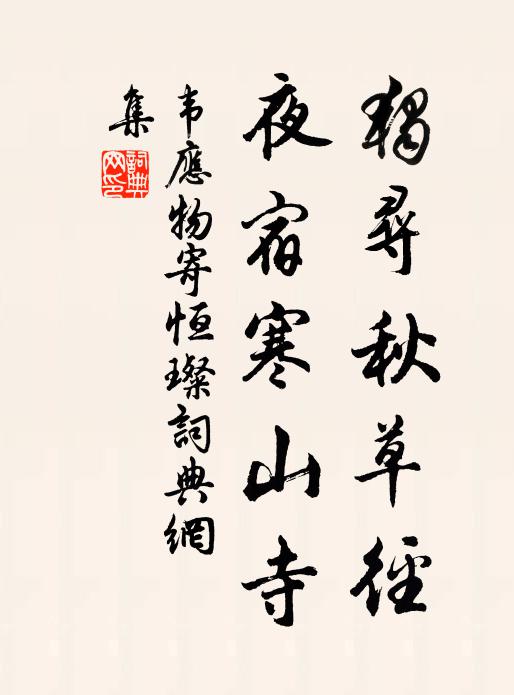 獨尋秋草徑
夜宿寒山寺
韦應物寄恒璨詞典網
集
詞典網印